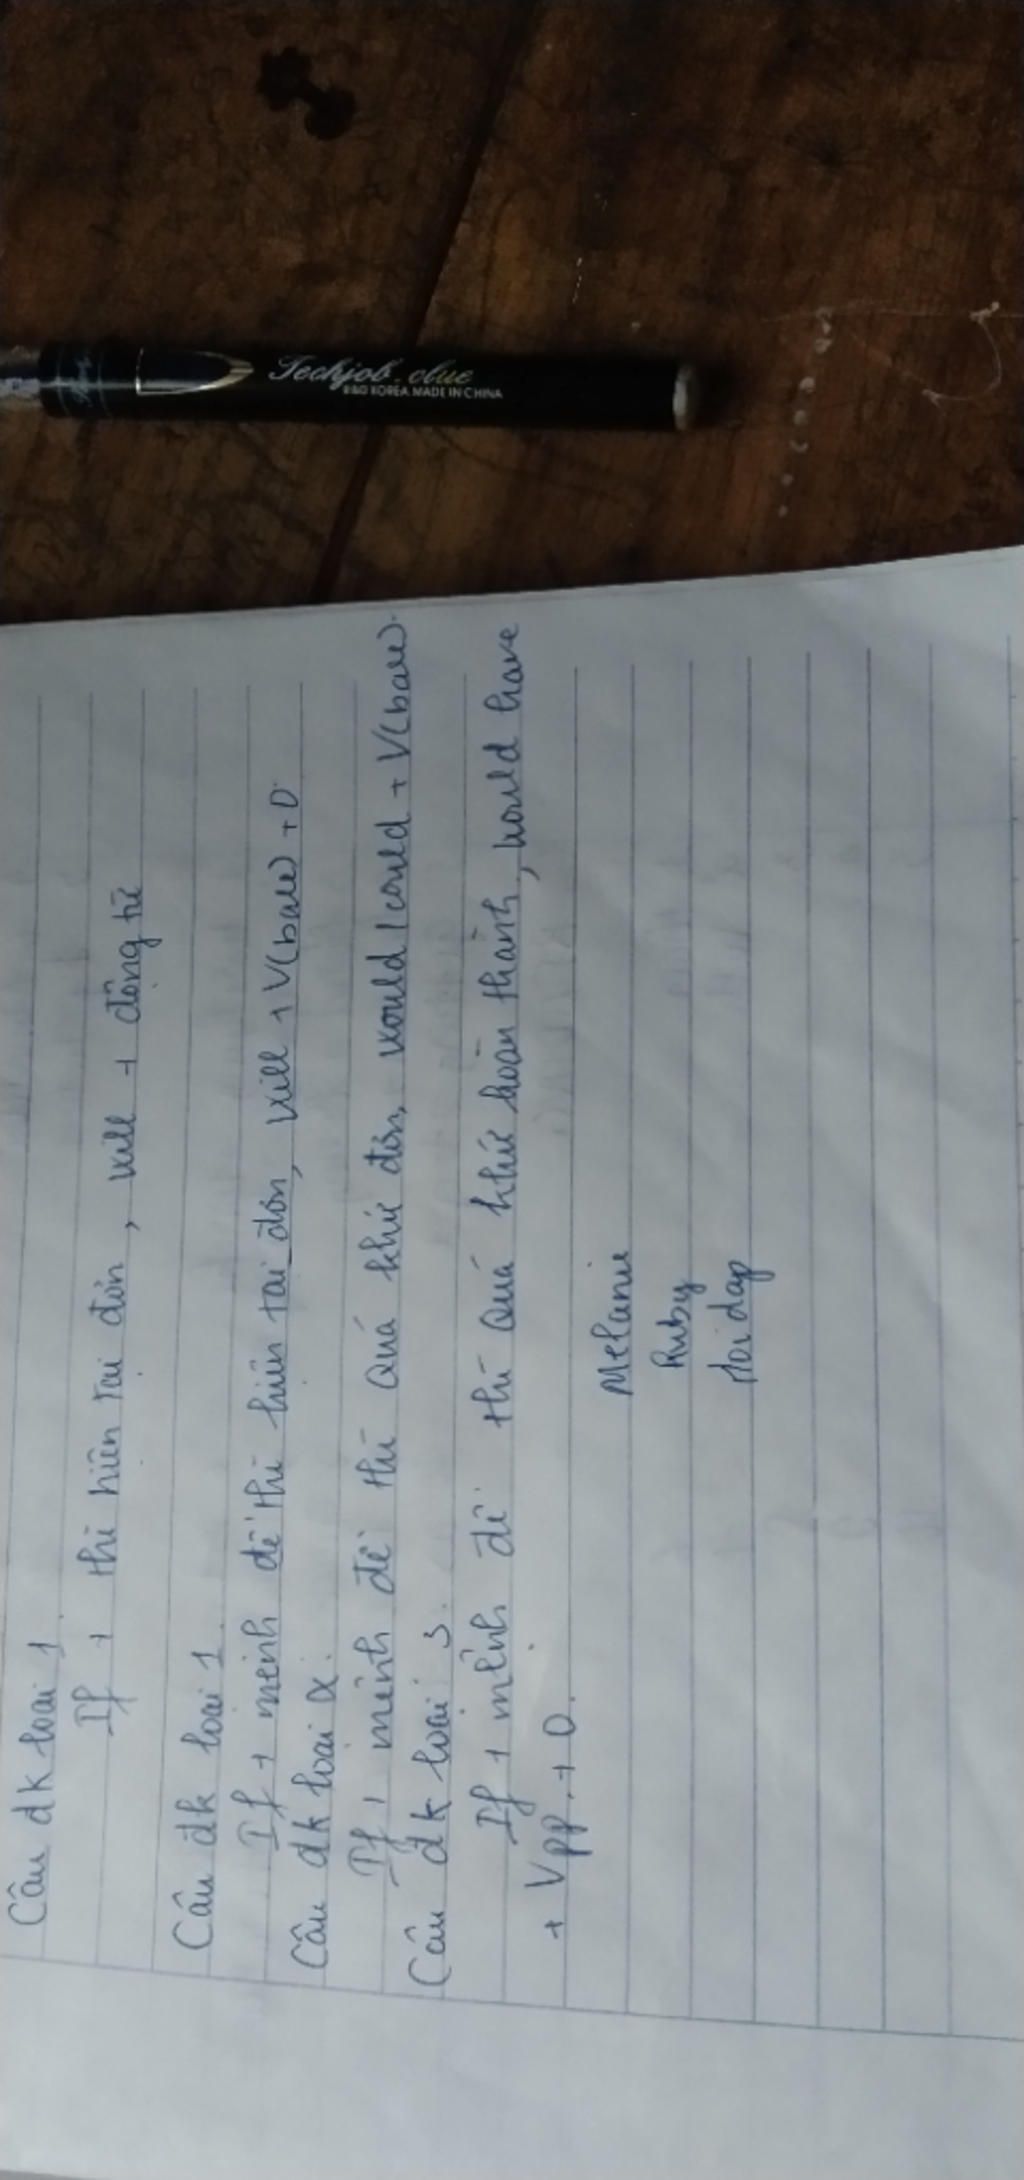 Câu đk loại 1
If + thì hiện tại đơn, will + động từ
Câu đk loại 1.
If + mệnh đề thì hiện tại đơn, will + V(bare) + O.
Câu đk loại 2.
If + mệnh đề thì quá khứ đơn, would/could + V(bare).
Câu đk loại 3.
If + mệnh đề thì quá khứ hoàn thành, would have
+ Vpp. + O.
Melanie
Ruby
Techjob.clue
R&D KOREA. MADE IN CHINA